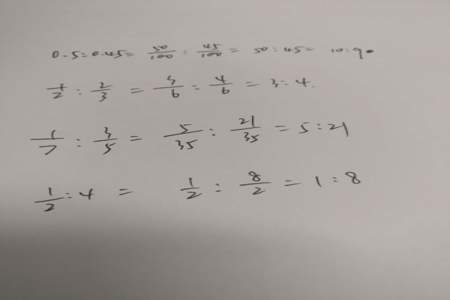 0.5:0.45= 50/100 : 45/100 = 50:45= 10:9.
1/2 : 2/3 = 3/6 : 4/6 = 3:4.
1/7 : 3/5 = 5/35 : 21/35 = 5:21
1/2 : 4 = 1/2 : 8/2 = 1:8